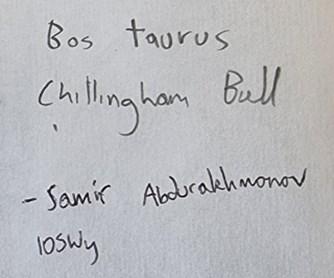 Bos taurus
Chillingham Bull
- Samir Abdurakhmonov
10SWy